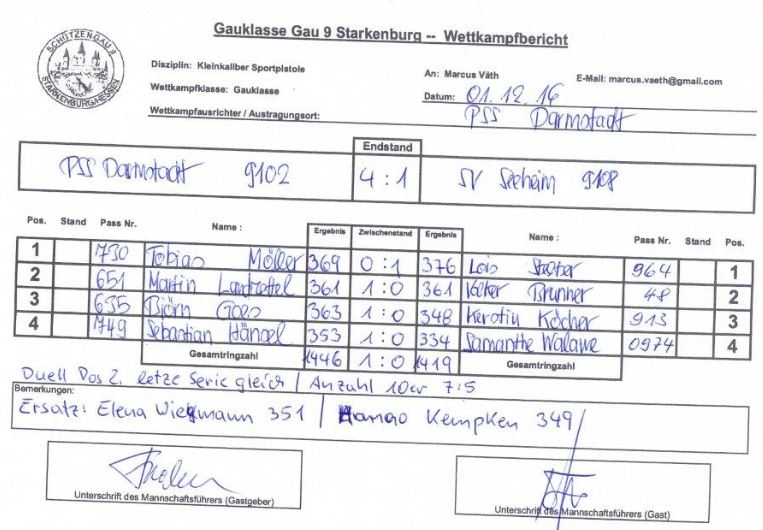 Gauklasse Gau 9 Starkenburg -- Wettkampfbericht
SCHÜTZENGAU 9
STARKENBURG/HESSEN
Disziplin: Kleinkaliber Sportpistole
An: Marcus Väth
E-Mail: marcus.vaeth@gmail.com
Wettkampfklasse: Gauklasse
Datum: 01.12.16
Wettkampfausrichter / Austragungsort: PSS Darmstadt
Endstand
PSS Darmstadt 9102 4 : 1 SV Seeheim 9108
Pos. Stand Pass Nr. Name : Ergebnis Zwischenstand Ergebnis Name : Pass Nr. Stand Pos.
1 730 Tobias Möller 369 0 : 1 376 964 1
2 651 Martin 361 1 : 0 361 Brunner 48 2
3 635 Björn 363 1 : 0 348 Kerstin Köcher 913 3
4 749 Sebastian Hänsel 353 1 : 0 334 Samantha 0974 4
Gesamtringzahl 1446 1 : 0 1419 Gesamtringzahl
Duell Pos 2. letze Serie gleich / Anzahl 10er 7:5
Bemerkungen:
Ersatz: Elena 351 / Kempken 349
Unterschrift des Mannschaftsführers (Gastgeber)
Unterschrift des Mannschaftsführers (Gast)